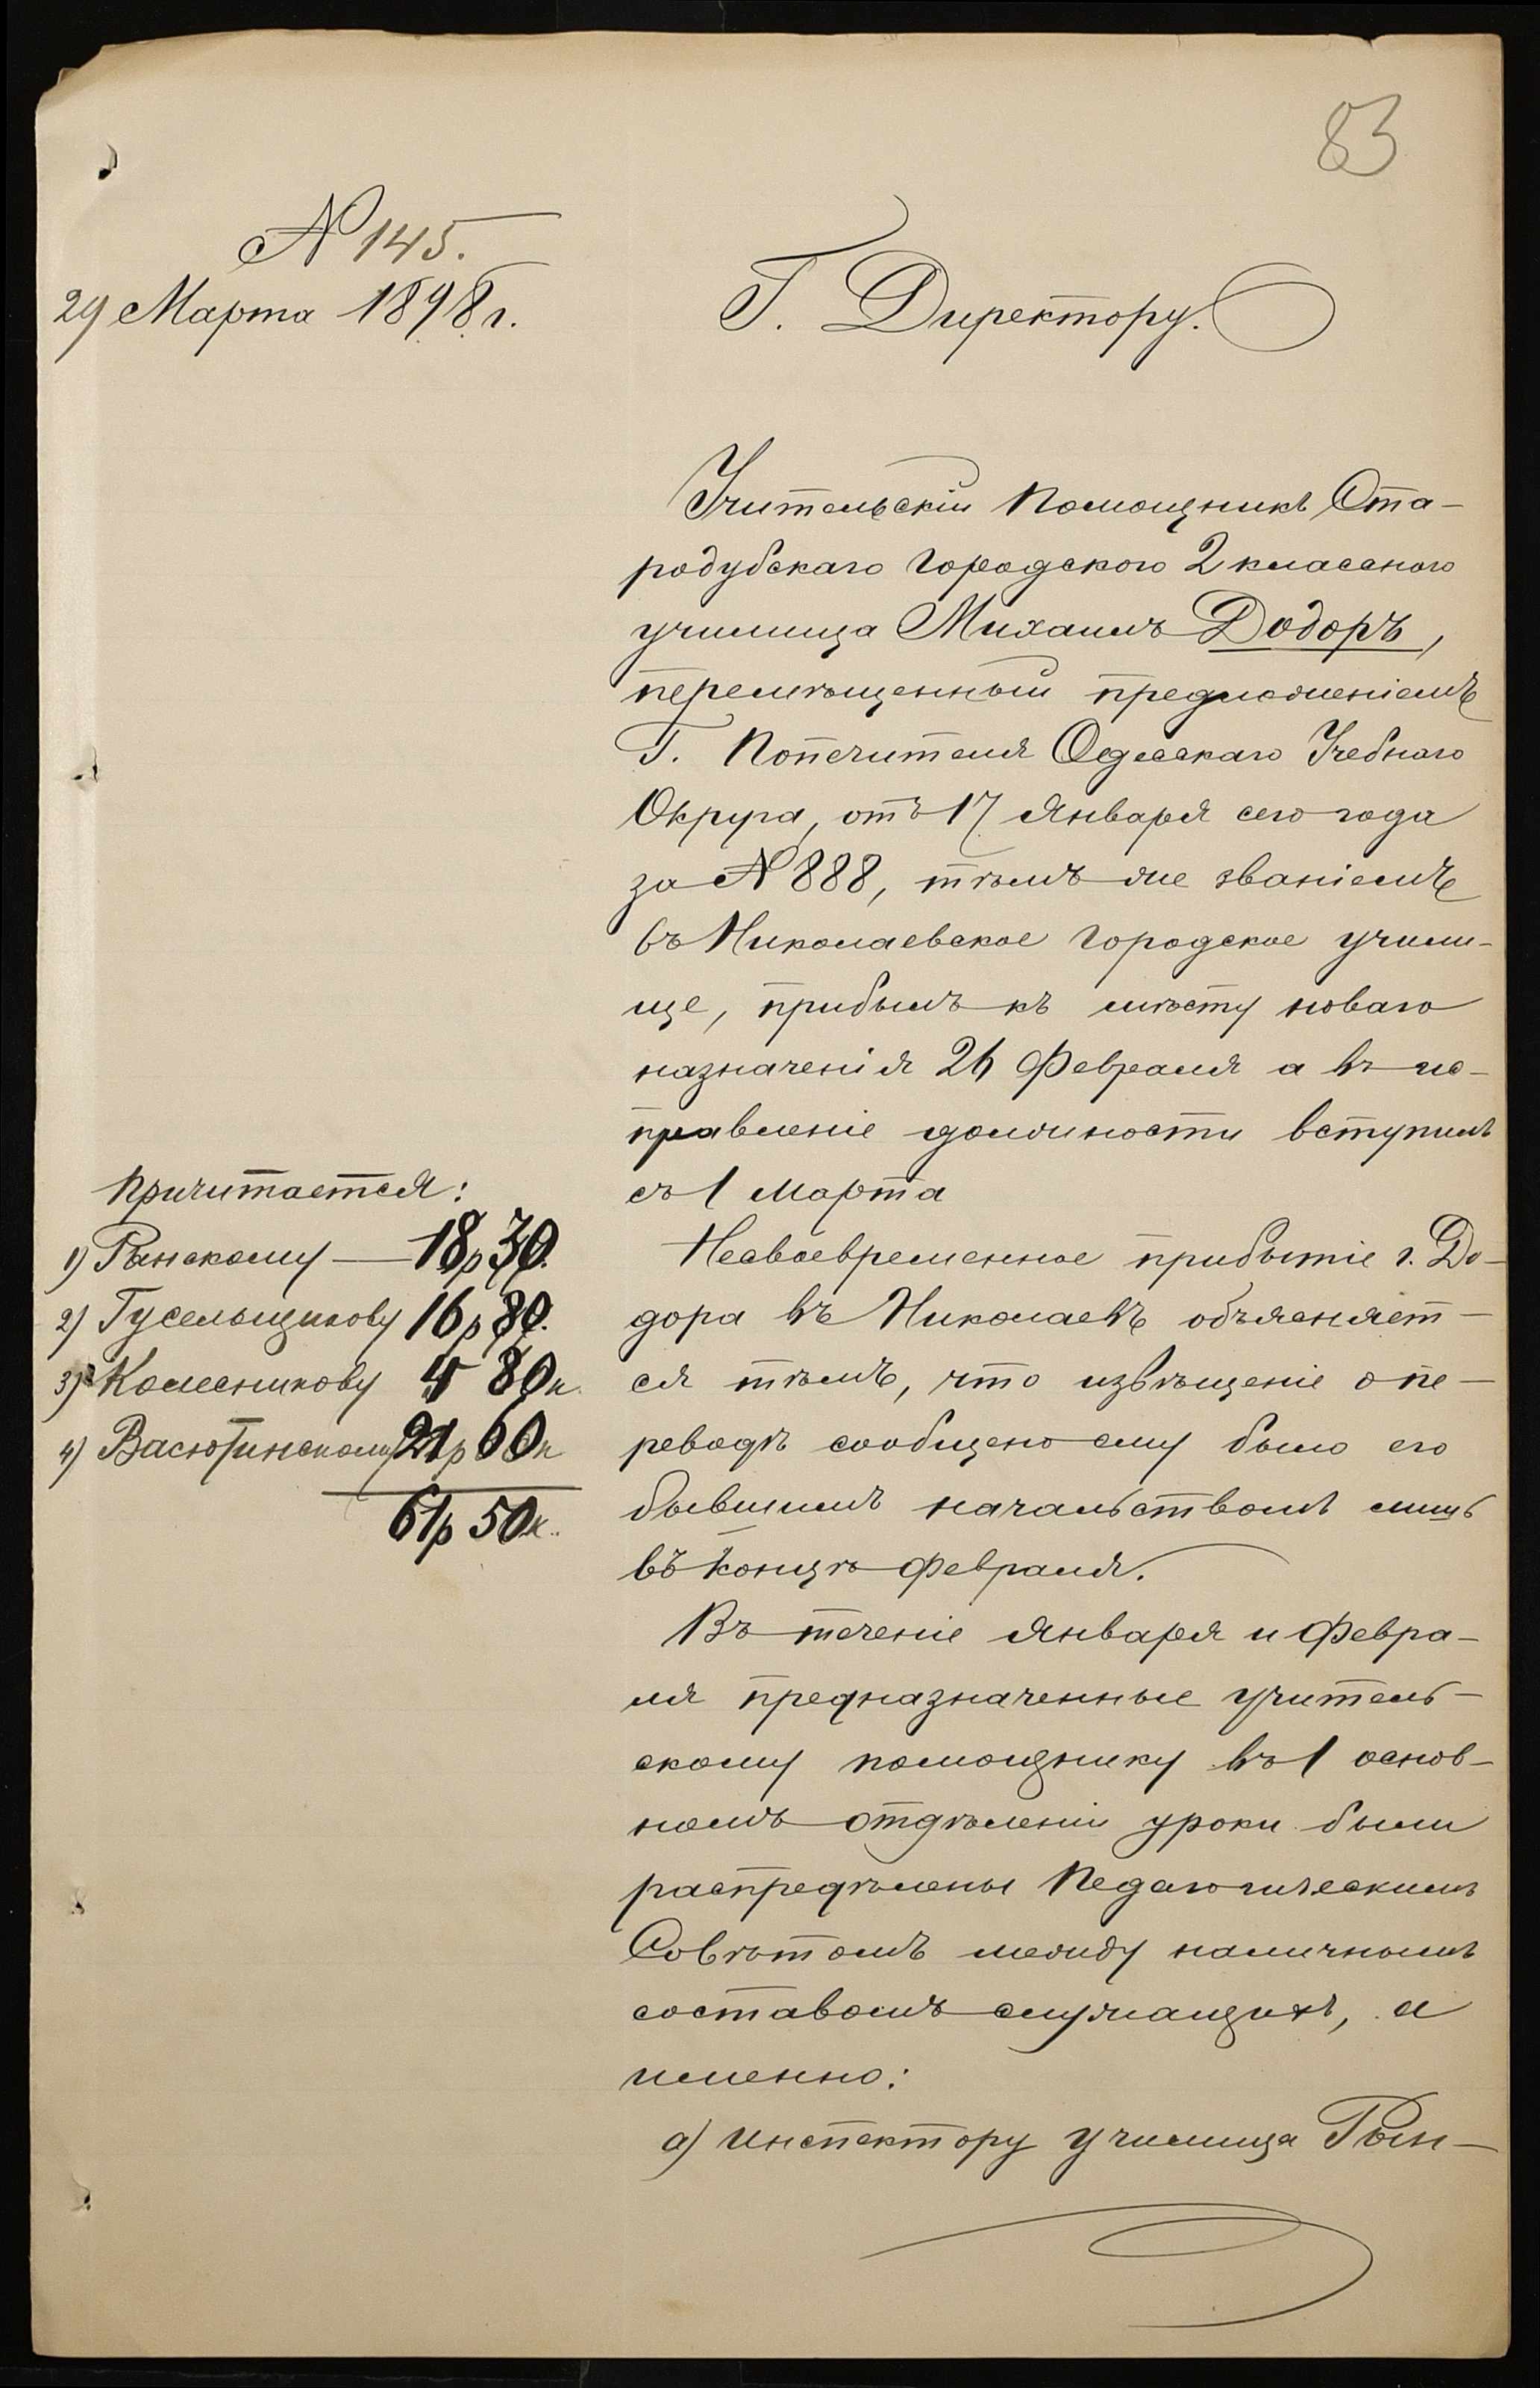 83
№ 145.
29 Марта 1898 г.
Г. Директору.
Учительскій Помощникъ Ста-
родубскаго Городского 2 классного
училища Михаилъ Додоръ,
перемѣщенный предложеніемъ
Г. Попечителя Одесскаго Учебнаго
Округа, отъ 17 Января сего года
за № 888, тѣмъ же званіемъ
въ Николаевское Городское учили-
ще, прибылъ къ мѣсту новаго
назначенія 26 Февраля а въ ис-
правленіе должности вступилъ
съ 1 Марта
Несвоевременное прибытіе г. До-
дора въ Николаевъ объясняет-
ся тѣмъ, что извѣщеніе о пе-
реводѣ сообщено ему было его
бывшимъ начальствомъ лишь
въ концѣ Февраля.
Въ теченіе Января и Февра-
ля предназначенные учитель-
скому помощнику въ 1 основ-
номъ отдѣленіи уроки были
распредѣлены Педагогическимъ
Совѣтомъ между наличнымъ
составомъ служащихъ, а
именно:
а) Инспектору училища Рын-
Причитается:
1) Рынскому — 18 р 30.
2) Гусельщикову 16 р 80.
3) Колесникову 4 80 к.
4) Васютинскому 21 р 60 к
61 р 50 к.